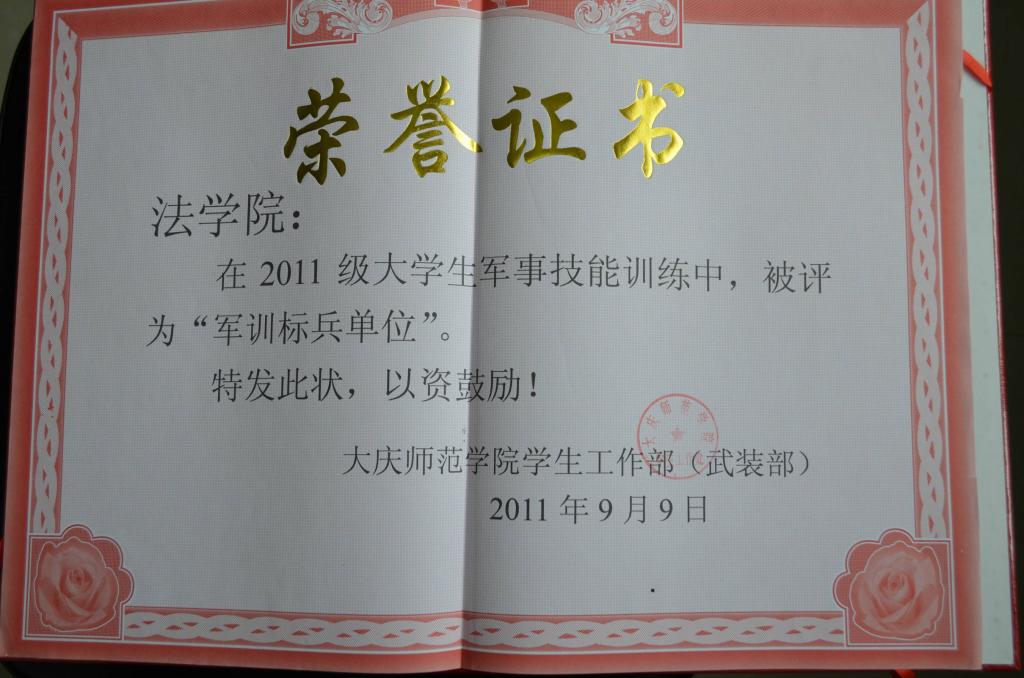 荣誉证书
法学院：
在 2011 级大学生军事技能训练中，被评
为“军训标兵单位”。
特发此状，以资鼓励！
大庆师范学院学生工作部（武装部）
2011 年 9 月 9 日
大庆师范学院